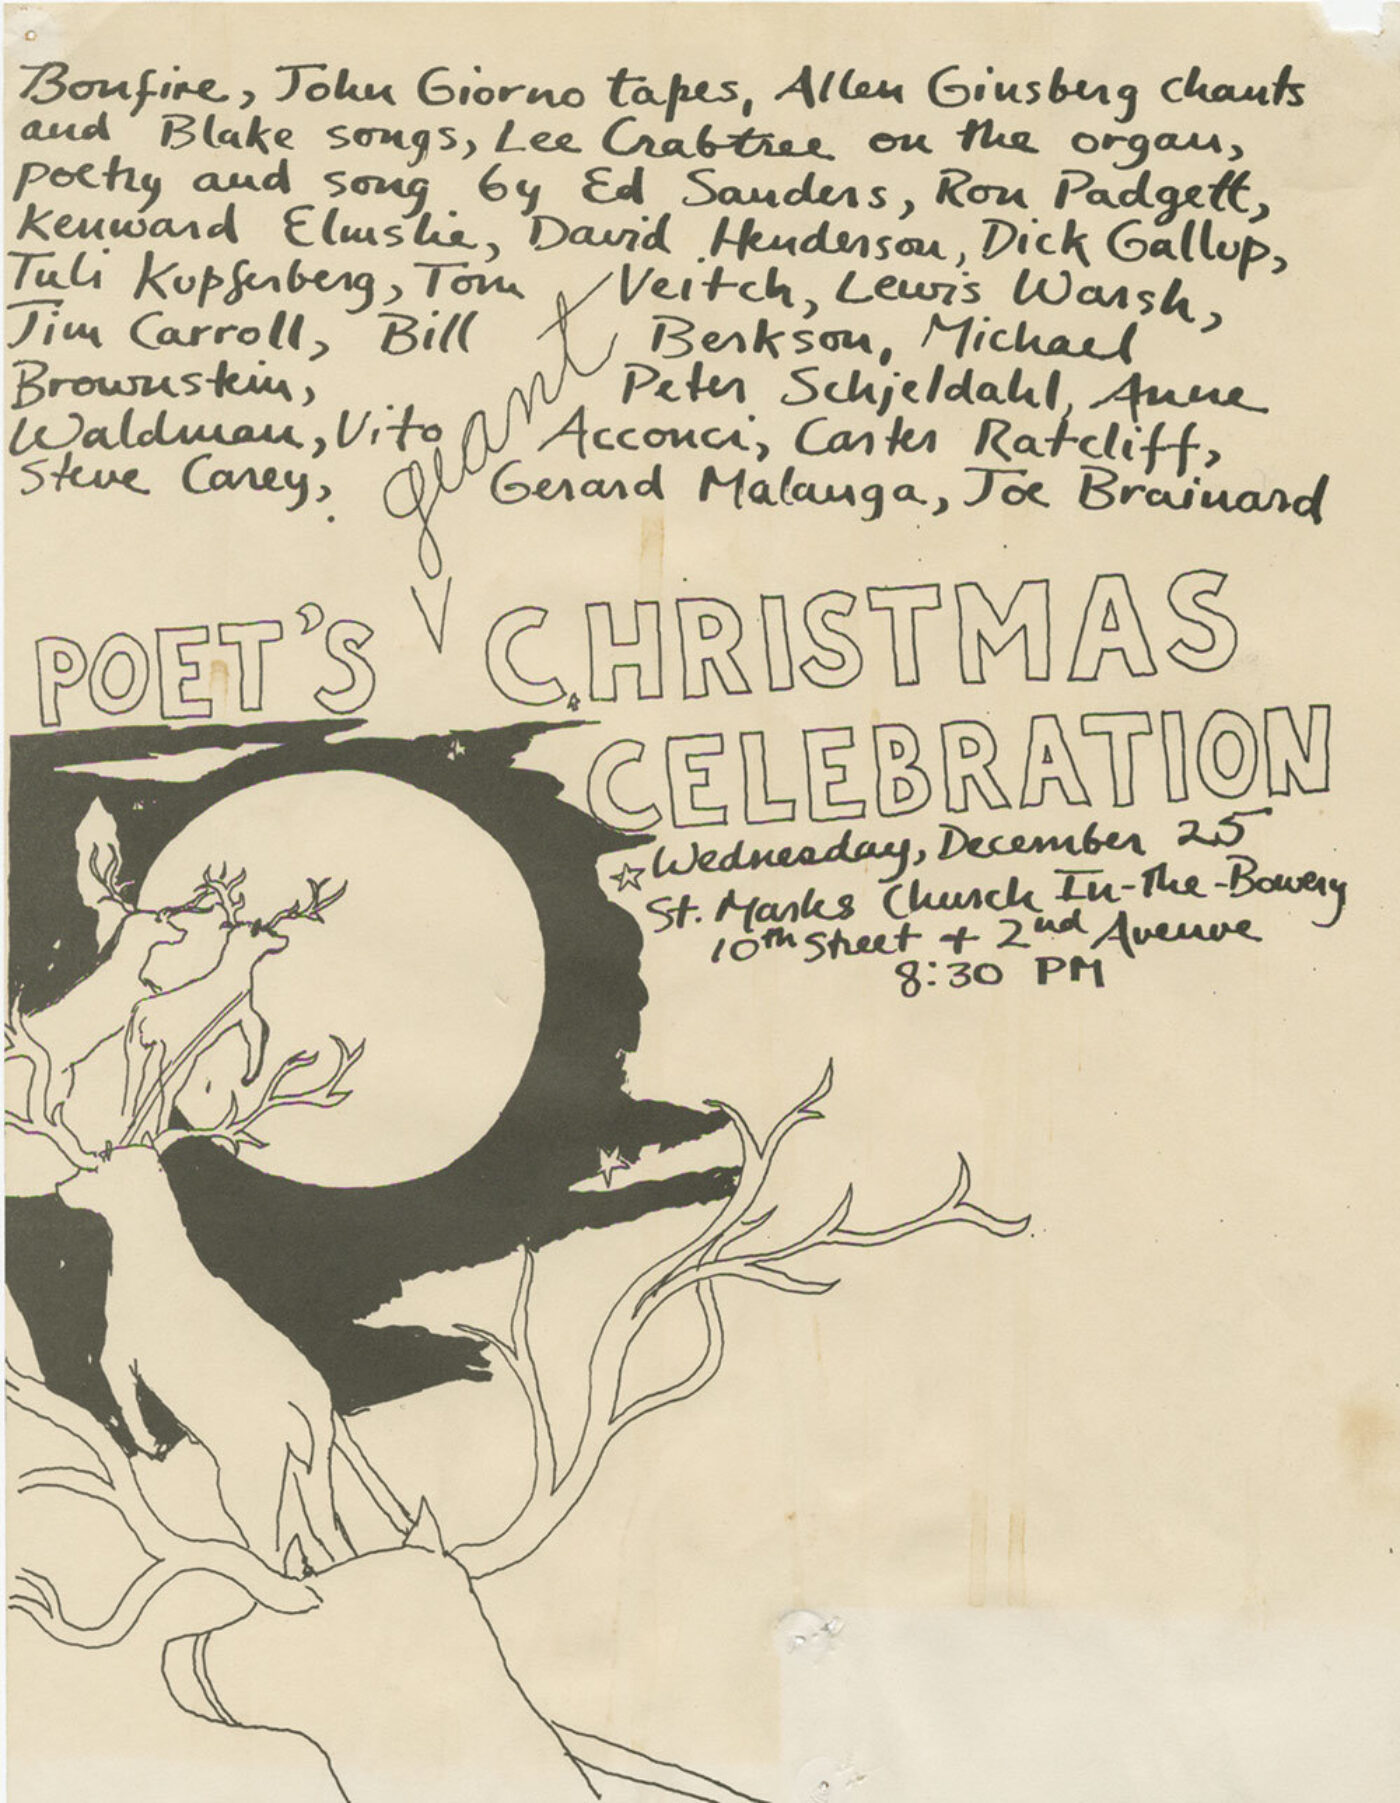 Bonfire, John Giorno tapes, Allen Ginsberg chants
and Blake songs, Lee Crabtree on the organ,
poetry and song by Ed Sanders, Ron Padgett,
Kenward Elmslie, David Henderson, Dick Gallup,
Tuli Kupferberg, Tom Veitch, Lewis Warsh,
Jim Carroll, Bill Berkson, Michael
Brownstein, Peter Schjeldahl, Anne
Waldman, Vito Acconci, Carter Ratcliff,
Steve Carey, Gerard Malanga, Joe Brainard
giant
POET'S CHRISTMAS
CELEBRATION
Wednesday, December 25
St. Marks Church In-The-Bowery
10th Street + 2nd Avenue
8:30 PM